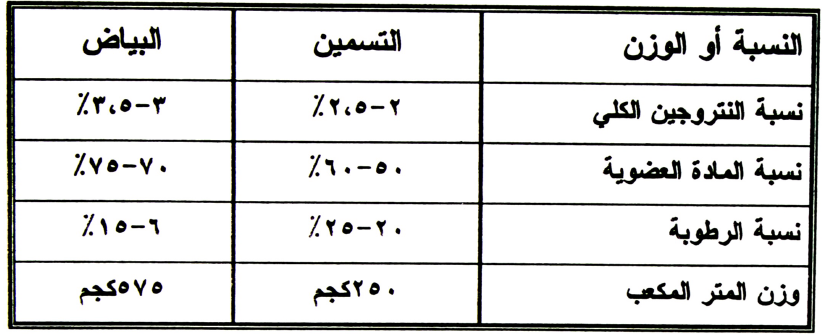 النسبة أو الوزن التسمين البياض
نسبة النتروجين الكلي ٢-٢،٥٪ ٣-٣،٥٪
نسبة المادة العضوية ٥٠-٦٠٪ ٧٠-٧٥٪
نسبة الرطوبة ٢٠-٢٥٪ ٦-١٥٪
وزن المتر المكعب ٢٥٠كجم ٥٧٥كجم